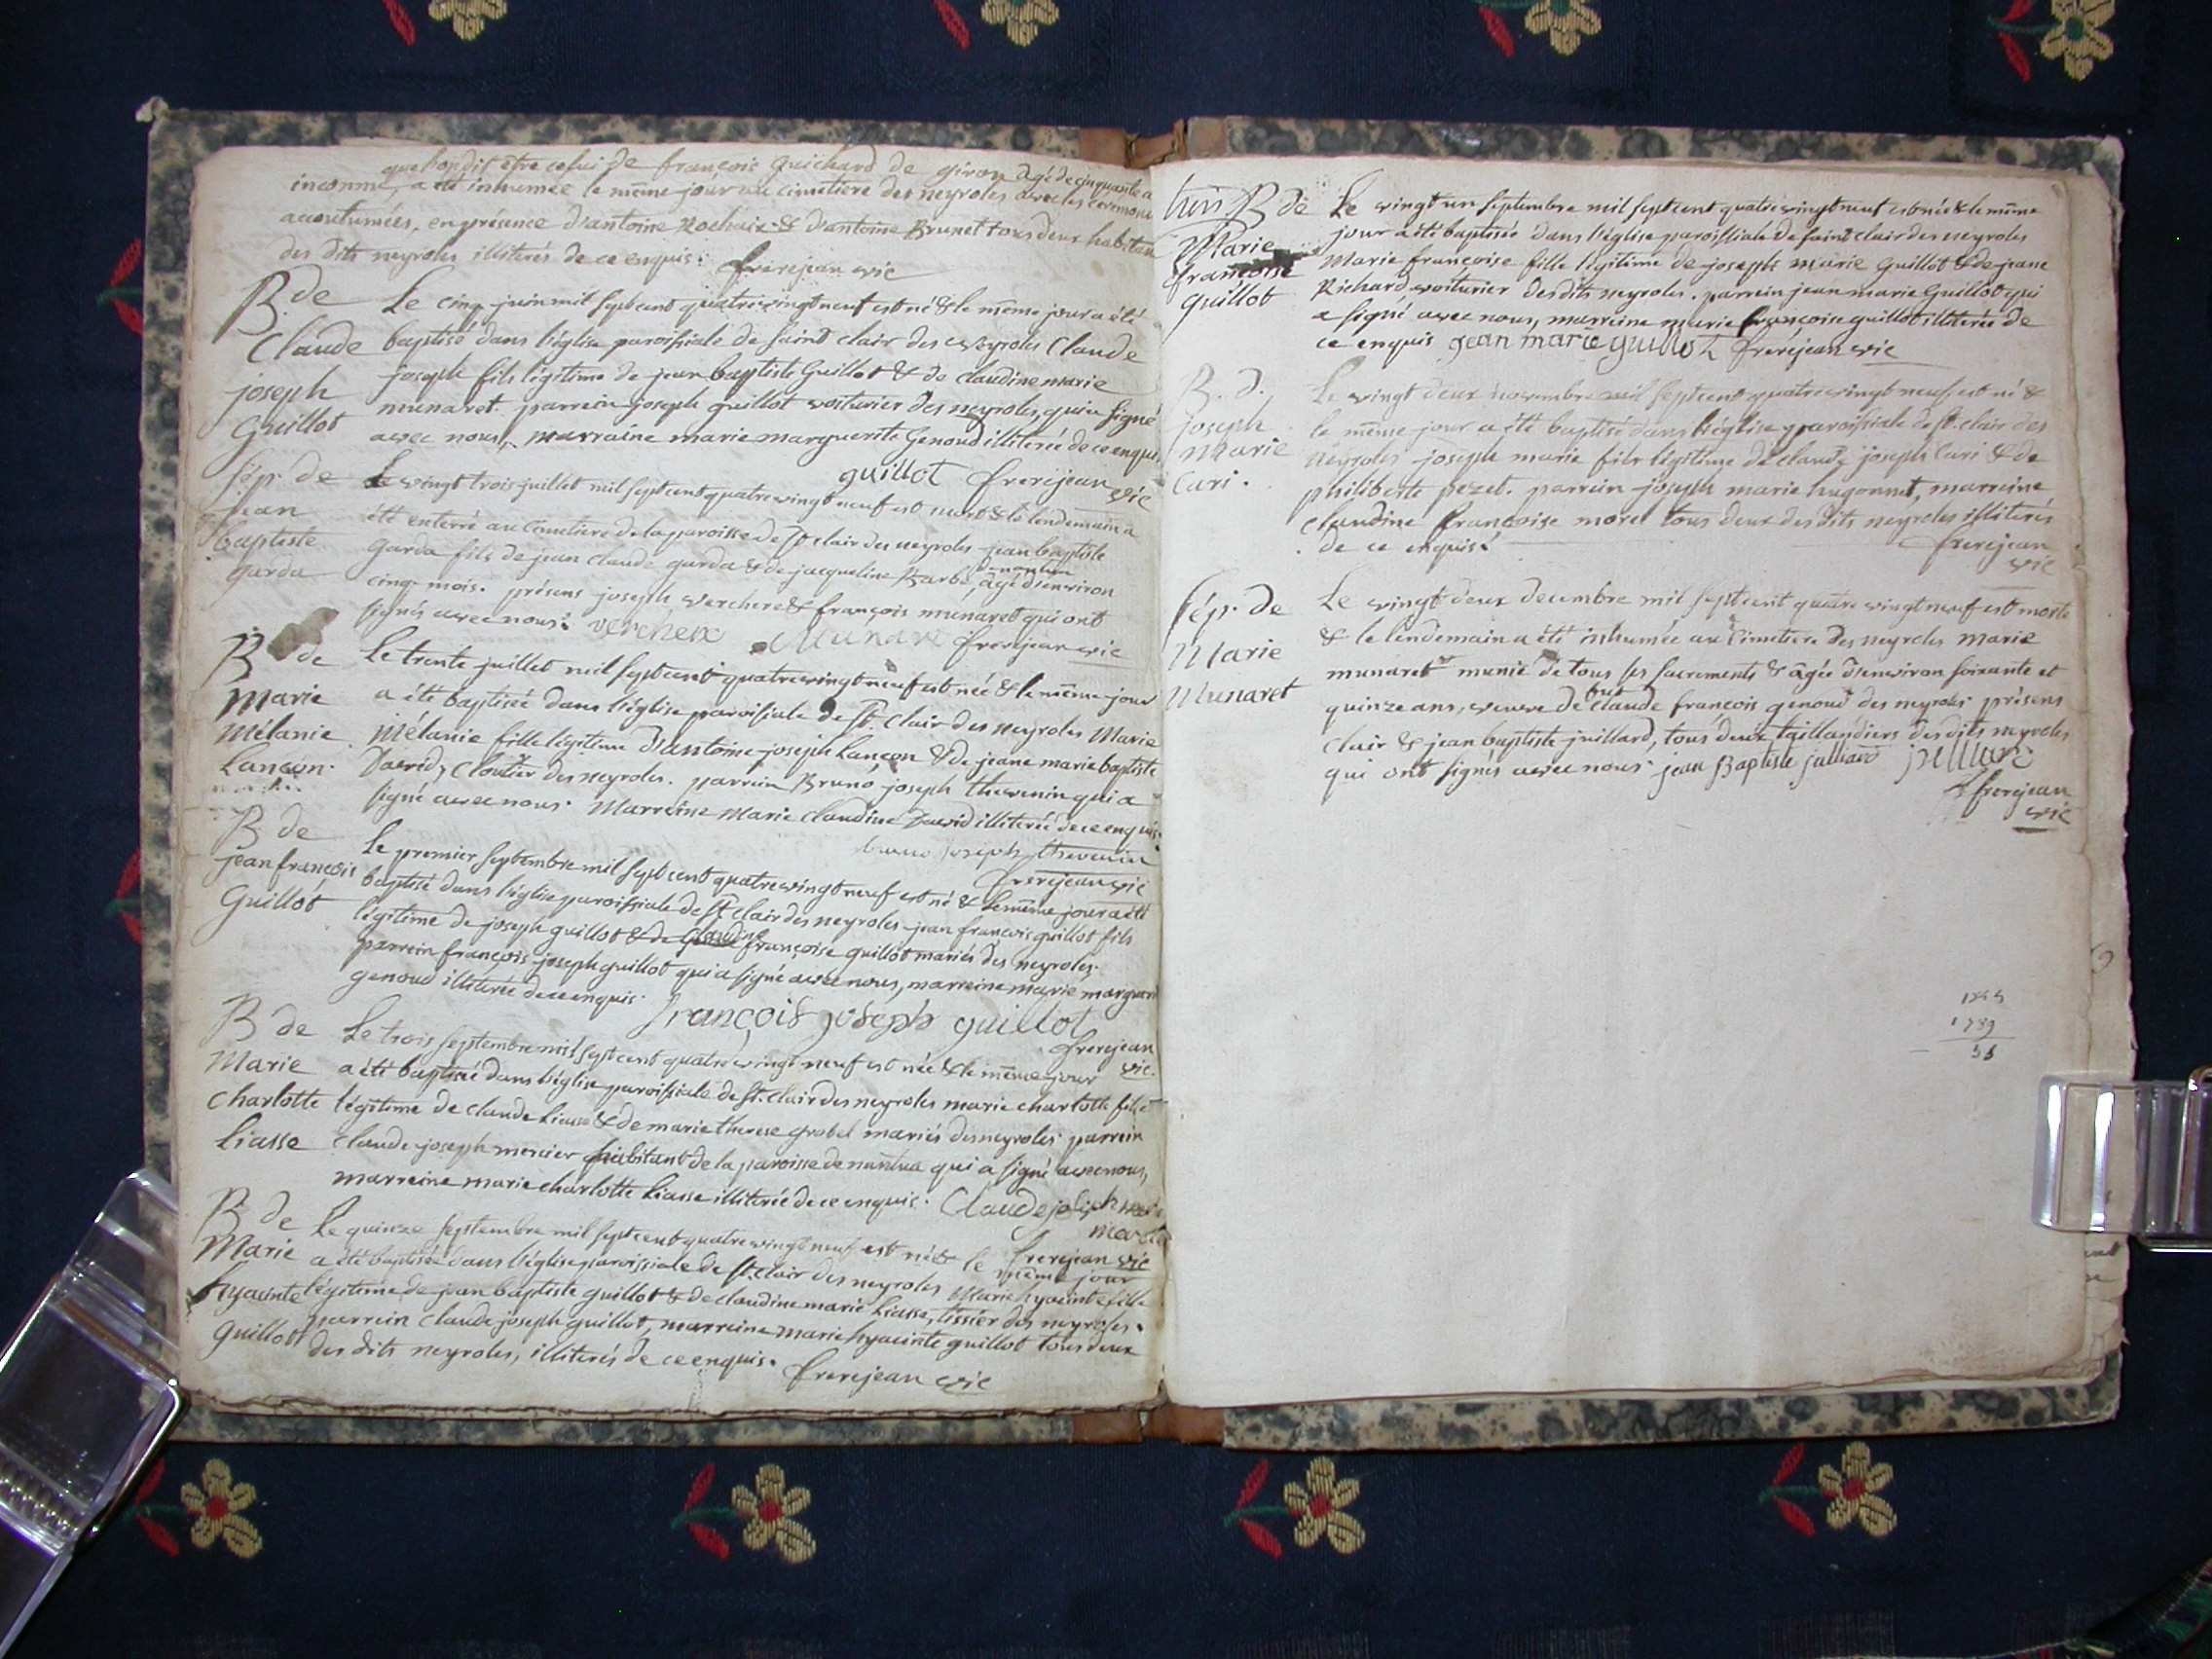 que l'on dit être celui de françois Guichard de giron agé de cinquante a
inconnu, a été inhumée le même jour au cimetiere des neyroles avec les ceremoni
accoutumées, en présence d'antoine Rochaix & d'antoine Brunet tous deux habitan
des dits neyroles illiterés de ce enquis. frerejean vic
B. de
Claude
joseph
Guillot
Le cinq juin mil sept cent quatre vingt neuf est né & le même jour a été
baptisé dans l'église paroissiale de saint clair des neyroles Claude
joseph fils légitime de jean baptiste Guillot & de claudine marie
munaret. parrein joseph guillot voiturier des neyroles, qui a signé
avec nous, marraine marie marguerite Genoud illiterée de ce enquis
guillot frerejean vic
sép. de
jean
baptiste
garda
Le vingt trois juillet mil sept cent quatre vingt neuf est mort & le lendemain a
été enterré au cimetiere de la paroisse de St. clair des neyroles jean baptiste
garda fils de jean claude garda & de jacqueline Barbe, âgé d'environ
cinq mois. présens joseph verchere & françois munaret qui ont
signés avec nous. verchere Munaret frerejean vic
B de
Marie
Mélanie
Lançon.
Le trente juillet mil sept cent quatre vingt neuf est née & le même jour
a été baptisée dans l'église paroissiale de St. Clair des neyroles Marie
Mélanie fille légitime d'antoine joseph Lançon & de jeane marie baptiste
David, Cloutier des neyroles. parrein Bruno joseph thevenin qui a
signé avec nous. Marreine Marie Claudine David illiterée de ce enquis.
bruno joseph thevenin
frerejean vic
B de
jean françois
Guillot
Le premier septembre mil sept cent quatre vingt neuf est né & le même jour a été
baptisé dans l'église paroissiale de St. clair des neyroles jean françois guillot fils
légitime de joseph guillot & de françoise guillot mariés des neyroles.
parrein françois joseph guillot qui a signé avec nous, marreine marie marguerit
genoud illiterée de ce enquis. françois joseph guillot
frerejean
vic.
B de
Marie
Charlotte
Liasse
Le trois septembre mil sept cent quatre vingt neuf est née & le même jour
a été baptisée dans l'église paroissiale de St. clair des neyroles marie charlotte fille
légitime de claude Liasse & de marie therese grobel mariés des neyroles. parrein
claude joseph mercier habitant de la paroisse de nantua qui a signé avec nous,
marreine marie charlotte Liasse illiterée de ce enquis. Claude joseph
mercier
frerejean vic
B de
Marie
hyacinte
Guillot
Le quinze septembre mil sept cent quatre vingt neuf est née & le même jour
a été baptisée dans l'église paroissiale de St. clair des neyroles Marie hyacinte fille
légitime de jean baptiste guillot & de claudine marie Liasse, tissier des neyroles.
parrein claude joseph guillot, marreine marie hyacinte guillot tous deux
des dits neyroles, illiterés de ce enquis. frerejean vic
B de
Marie
françoise
Guillot
Le vingt un septembre mil sept cent quatre vingt neuf est née & le même
jour a été baptisée dans l'église paroissiale de saint clair des neyroles
Marie françoise fille légitime de joseph marie Guillot & de jeane
Richard, voiturier des dits neyroles. parrein jean marie Guillot qui
a signé avec nous, marreine marie françoise guillot illiterée de
ce enquis jean marie guillot frerejean vic
B. d.
joseph
marie
Cari.
Le vingt deux novembre mil sept cent quatre vingt neuf, est né &
le même jour a été baptisé dans l'église paroissiale de St. clair des
neyroles joseph marie fils légitime de claude joseph Cari & de
philiberte pezet. parrein joseph marie hugonnet, marreine
claudine françoise morel tous deux des dits neyroles illiterés
de ce enquis. frerejean
vic
sép. de
Marie
Munaret
Le vingt deux decembre mil sept cent quatre vingt neuf est morte
& le lendemain a été inhumée au Cimetiere des neyroles marie
munaret munie de tous ses sacrements & âgée d'environ soixante et
quinze ans, veuve de claude françois genoud des neyroles. présens
clair & jean baptiste juillard, tous deux taillandiers des dits neyroles
qui ont signés avec nous. jean Baptiste julliard julliard
frerejean
vic
1789